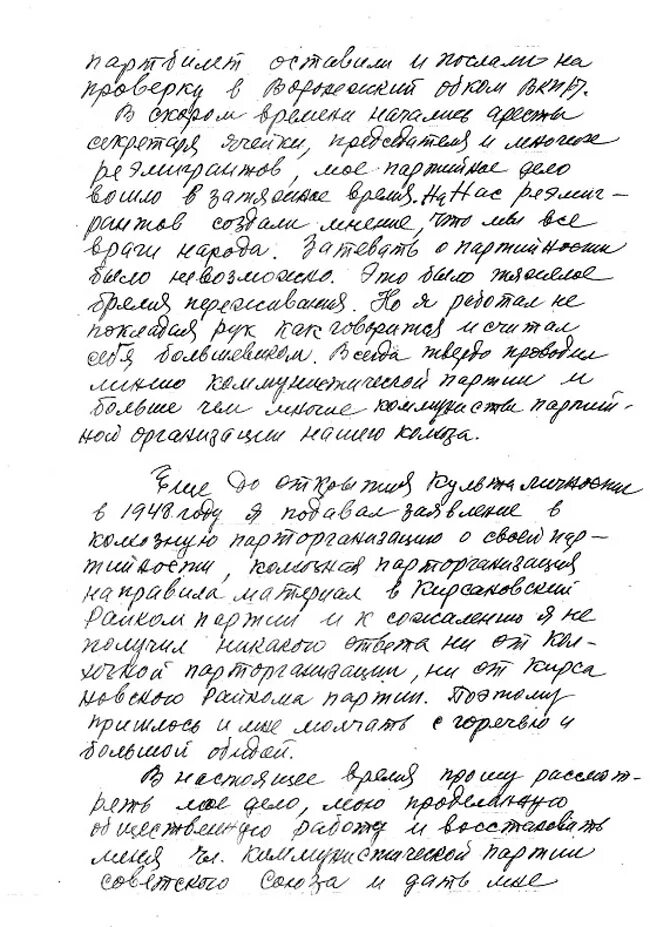 партбилет оставили и послали на
проверку в Воронежский обком ВКП/б.
В скором времени начались аресты
секретаря ячейки, председателя и многих
реэмигрантов, мое партийное дело
вошло в затяжное время. На нас реэмиг-
рантов создали мнение, что мы все
враги народа. Затевать о партийности
было невозможно. Это было тяжелое
бремя переживания. Но я работал не
покладая рук как говорится и считал
себя большевиком. Всегда твердо проводил
линию коммунистической партии и
больше чем многие коммунисты партий-
ной организации нашего колхоза.
Еще до открытия Культа личности
в 1948 году я подавал заявление в
колхозную парторганизацию о своей пар-
тийности, колхозная парторганизация
направила материал в Кирсановский
Райком партии и к сожалению я не
получил никакого ответа ни от кол-
хозной парторганизации, ни от Кирса
новского Райкома партии. Поэтому
пришлось и мне молчать с горечью и
большой обидой.
В настоящее время прошу рассмот-
реть мое дело, мою проделанную
общественную работу и восстановить
меня чл. Коммунистической партии
советского Союза и дать мне